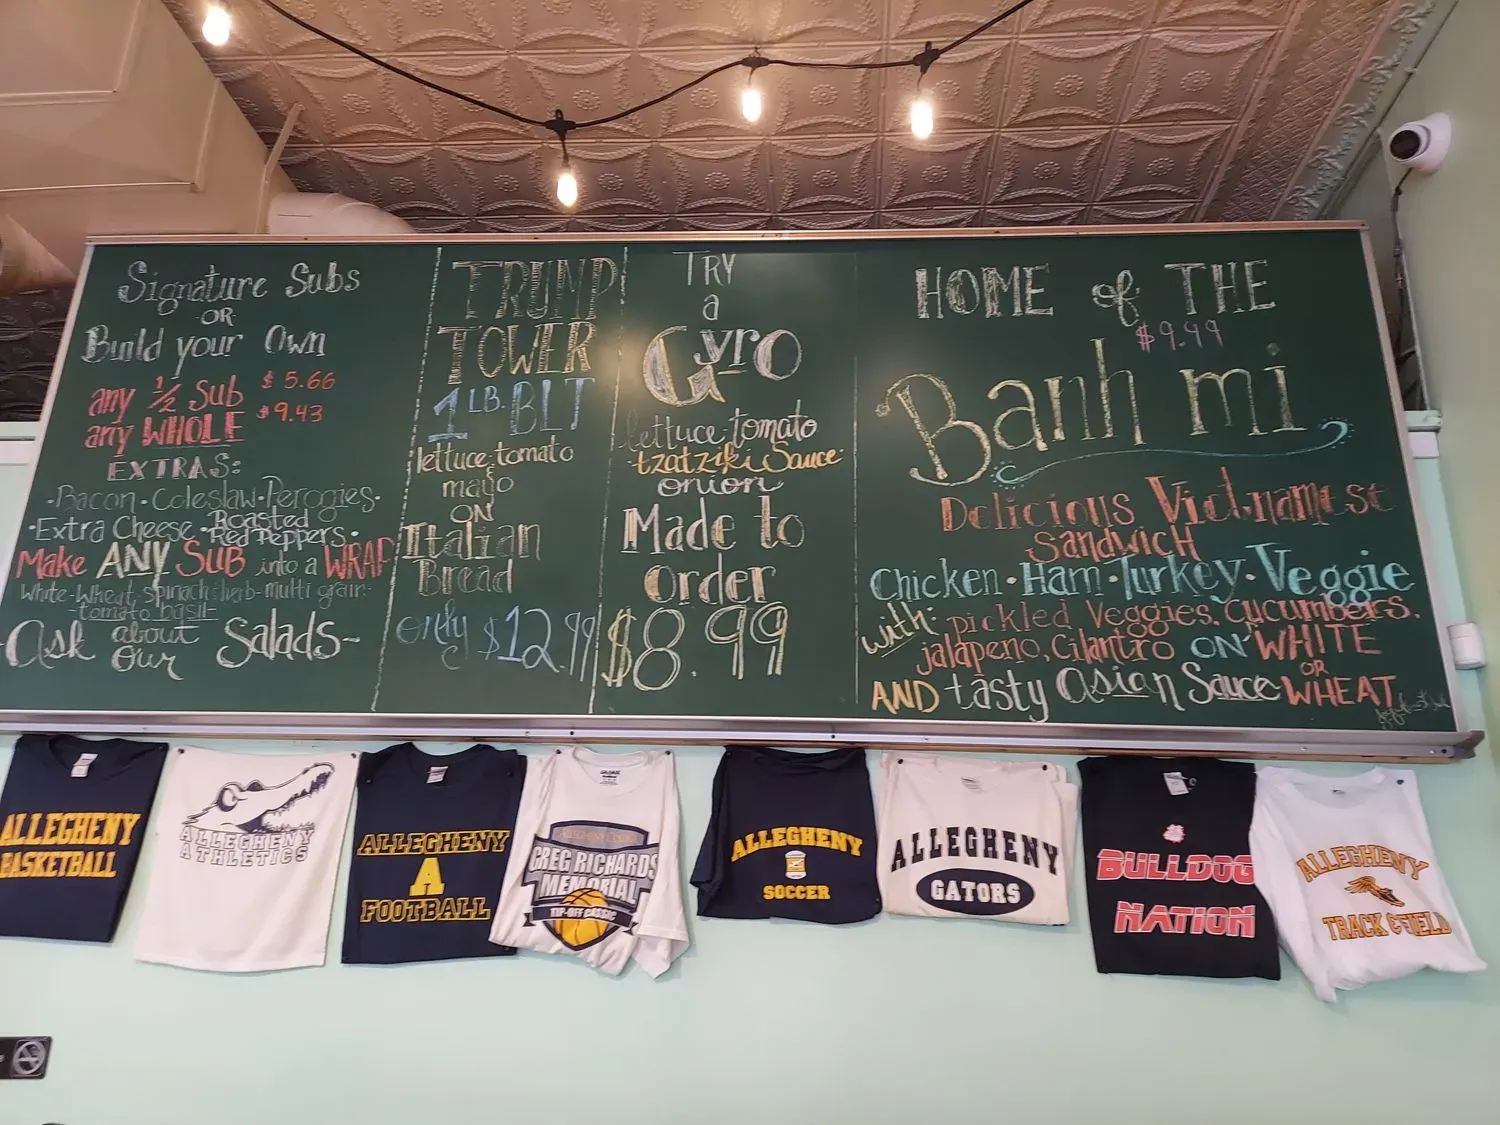 Signature Subs
OR
Build your Own
any 1/2 Sub $5.66
any WHOLE $9.43
EXTRAS:
·Bacon·Coleslaw·Perogies·
·Extra Cheese·Roasted Red Peppers·
Make ANY SUB into a WRAP
White-Wheat-spinach herb-multi grain-
-tomato basil-
-Ask about our Salads-
TRUMP
TOWER
1 LB. BLT
lettuce·tomato
&
mayo
ON
Italian
Bread
only $12.99
TRY
a
Gyro
lettuce·tomato
·tzatziki Sauce·
onion
Made to
Order
$8.99
HOME of THE
$9.99
Banh mi
Delicious Vietnamese
Sandwich
Chicken·Ham·Turkey·Veggie
with: pickled Veggies, Cucumbers,
jalapeno, Cilantro ON WHITE
OR
AND tasty Asian Sauce WHEAT
ALLEGHENY
BASKETBALL
ALLEGHENY
ATHLETICS
ALLEGHENY
A
FOOTBALL
GREG RICHARDS
MEMORIAL
TIP-OFF CLASSIC
ALLEGHENY
SOCCER
ALLEGHENY
GATORS
BULLDOG
NATION
ALLEGHENY
TRACK & FIELD